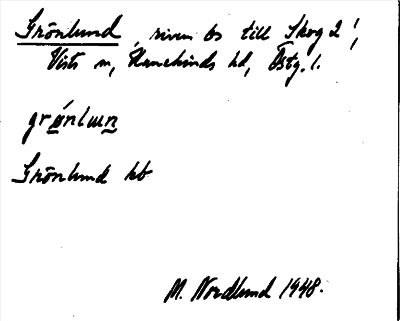 Grönlund, riven bs till Skog 2!,
Vists sn, Hanekinds hd, Östg. l.
grønlun
Grönlund hb
M. Nordlund 1948.